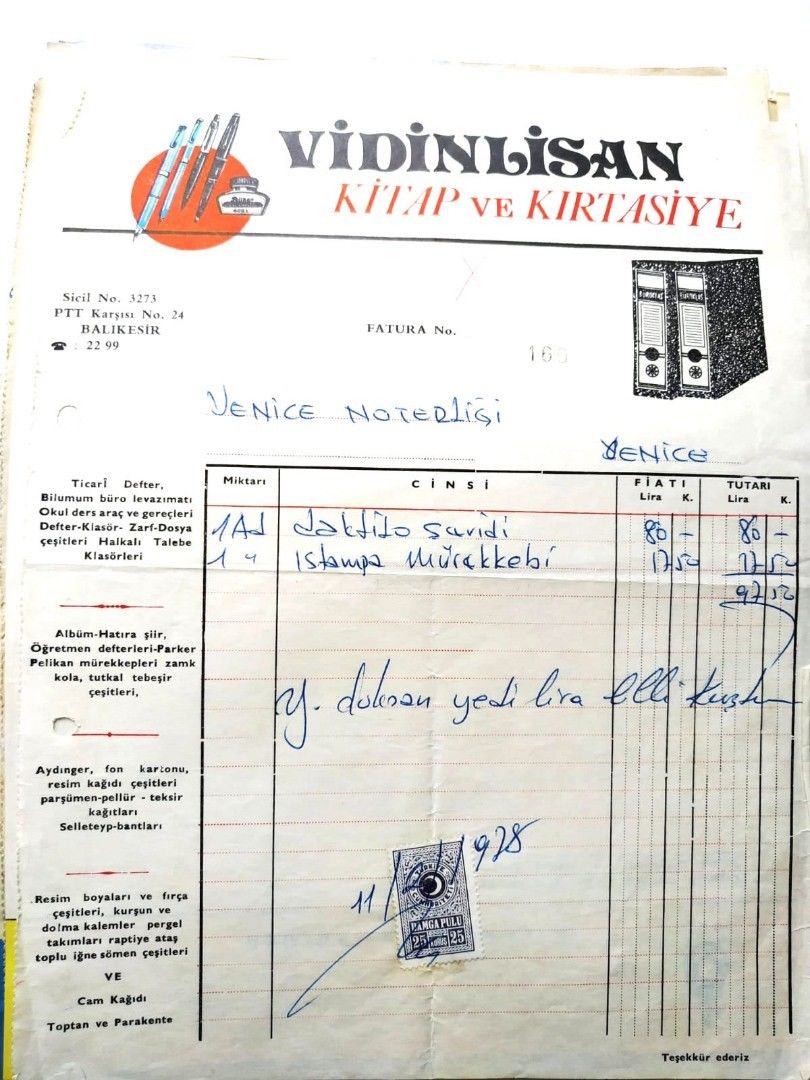 VİDİNLİSAN
KİTAP VE KIRTASİYE
Sicil No. 3273
PTT Karşısı No. 24
BALIKESİR
☎ : 22 99
FATURA No.
160
YENİCE NOTERLİĞİ
YENİCE
Ticarî Defter,
Bilumum büro levazımatı
Okul ders araç ve gereçleri
Defter-Klasör- Zarf-Dosya
çeşitleri Halkalı Talebe
Klasörleri
Albüm-Hatıra şiir,
Öğretmen defterleri-Parker
Pelikan mürekkepleri zamk
kola, tutkal tebeşir
çeşitleri,
Aydınger, fon kartonu,
resim kağıdı çeşitleri
parşümen-pellür - teksir
kağıtları
Selleteyp-bantları
Resim boyaları ve fırça
çeşitleri, kurşun ve
dolma kalemler pergel
takımları raptiye ataş
toplu iğne sömen çeşitleri
VE
Cam Kağıdı
Toptan ve Parakente
Miktarı CİNSİ FİATI TUTARI
Lira K. Lira K.
1 Ad daktilo şaridi 80 - 80 -
1 " Istampa mürekkebi 17 50 17 50
97 50
Y. doksan yedi lira elli kuruştur
11 1978
DAMGA PULU
25 KURUŞ 25
Teşekkür ederiz